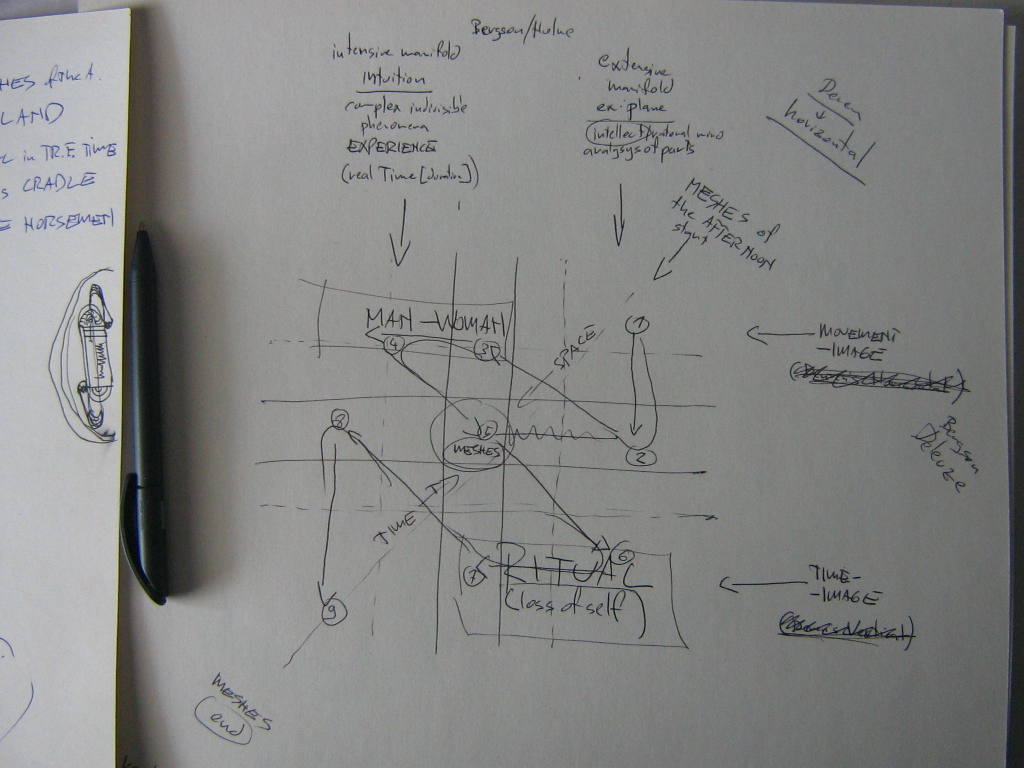 Bergson/Hulme
intensive manifold
intuition
complex indivisible
phenomena
EXPERIENCE
(real Time [duration])
extensive
manifold
ex:plane
(intellect)/rational mind
analysys of parts
Deren
horizontal
MESHES of
the AFTERNOON
start
MAN - WOMAN
4
3
SPACE
1
MOVEMENT
-IMAGE
8
5
MESHES
2
Bergson
Deleuze
TIME
7
RITUAL
6
(loss of self)
9
TIME-
-IMAGE
MESHES
(end)
LAND
IN TR.F. TIME
CRADLE
HORSEMEN